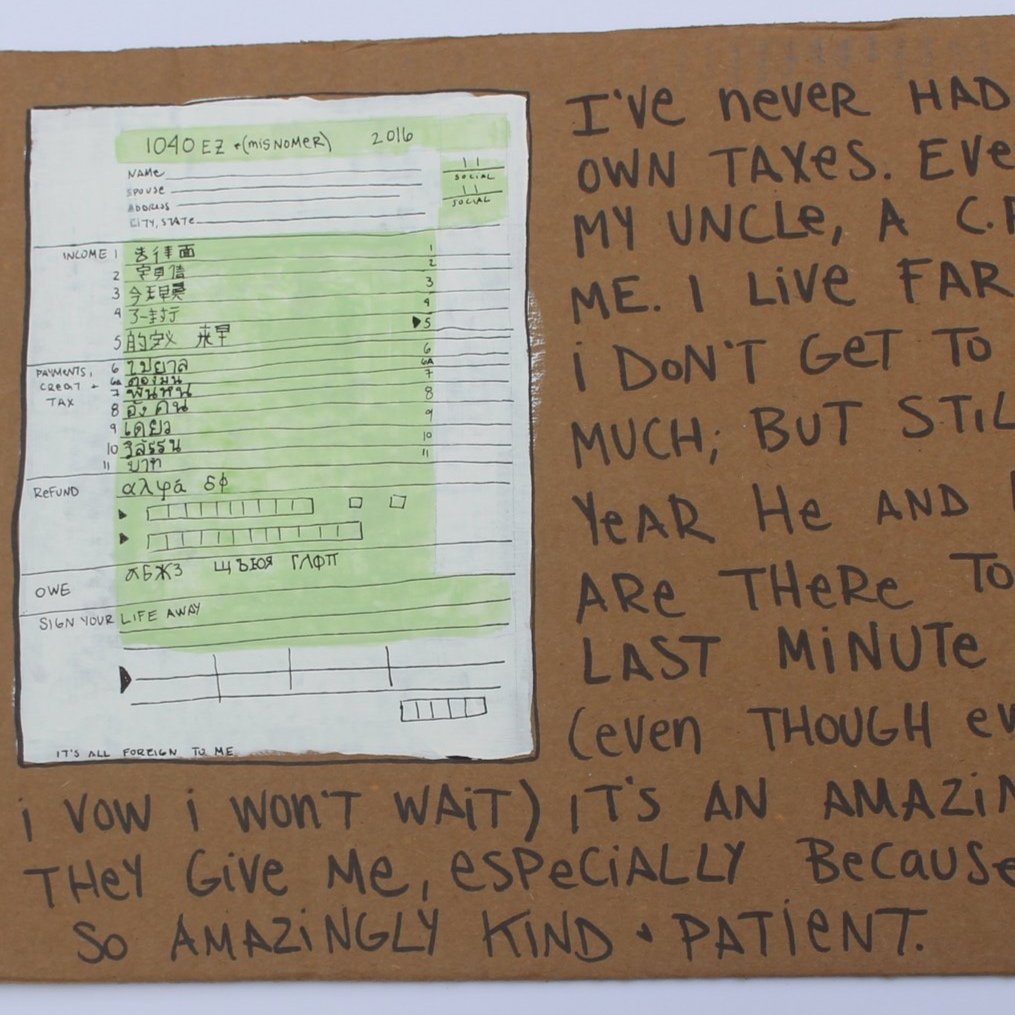 1040 EZ *(MISNOMER) 2016
NAME
SPOUSE
ADDRESS
CITY, STATE
SOCIAL
SOCIAL
INCOME 1 告律面 1
2 字貝借 2
3 3
4 了一封行 4
5 的定义 来早 5
PAYMENTS, CREDIT + TAX
6 ไปยาล 6
6A ตองมน 6A
7 พันหน 7
8 อัง คน 8
9 เดียว 9
10 วิสรรน 10
11 บาท 11
REFUND αλφά δφ
ЛБЖЗ ЩЪЮЯ ГЛФП
OWE
SIGN YOUR LIFE AWAY
IT'S ALL FOREIGN TO ME.
I'VE NEVER HAD
OWN TAXES. EVE
MY UNCLE, A C.P
ME. I LIVE FAR
I DON'T GET TO
MUCH; BUT STIL
YEAR HE AND
ARE THERE TO
LAST MINUTE
(EVEN THOUGH EV
I VOW I WON'T WAIT) IT'S AN AMAZIN
THEY GIVE ME, ESPECIALLY BECAUSE
SO AMAZINGLY KIND + PATIENT.